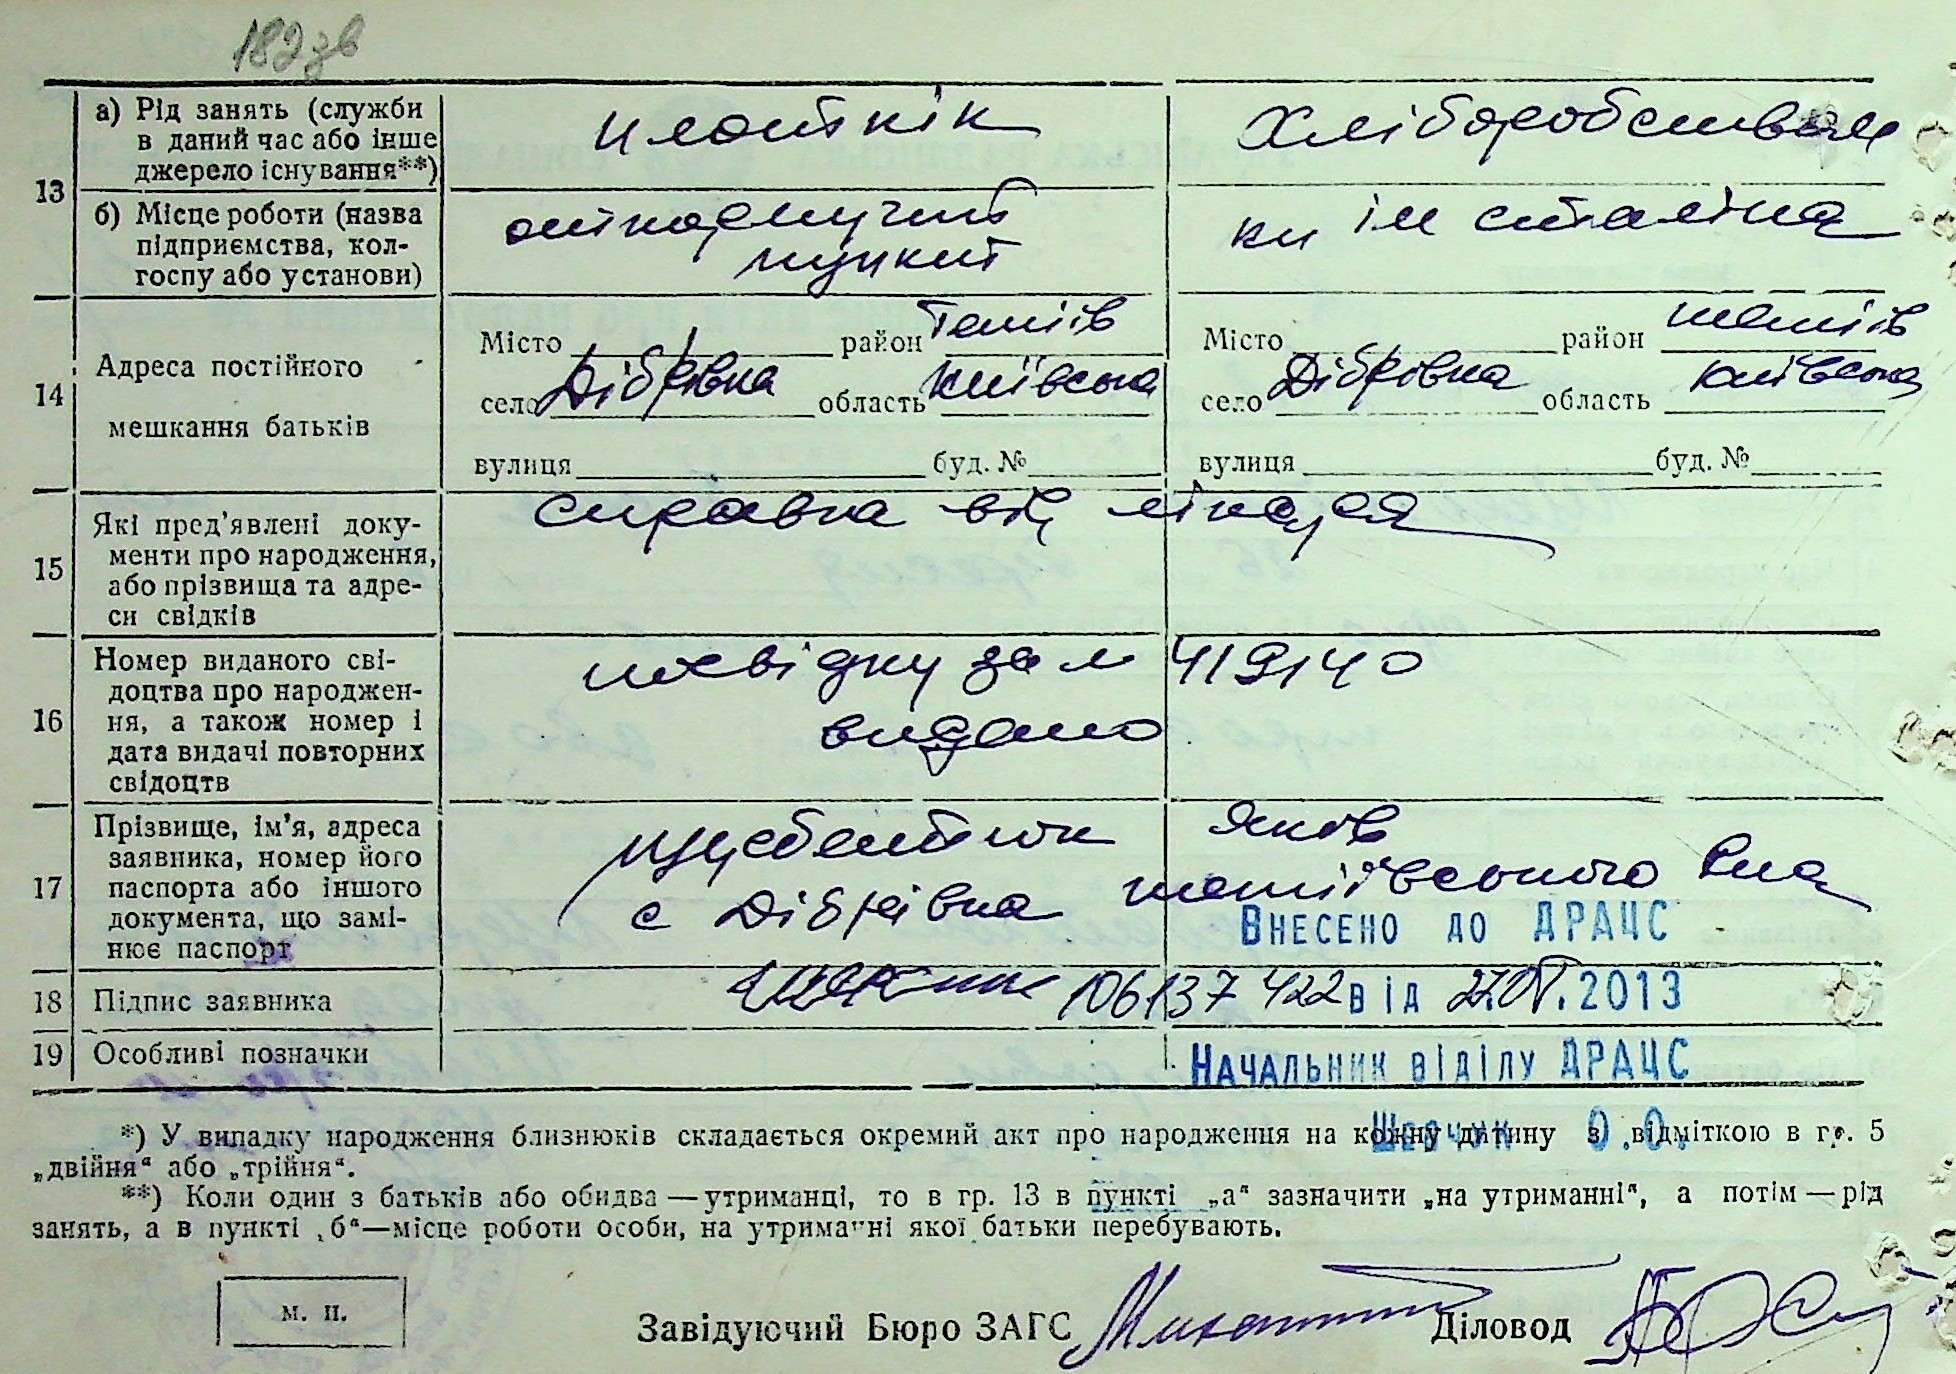 182 зв
13
а) Рід занять (служби в даний час або інше джерело існування**)
плотнік
Хліборобством
б) Місце роботи (назва підприємства, колгоспу або установи)
пункт
кп ім сталіна
14
Адреса постійного мешкання батьків
Місто район Тетіїв
село Дібрівка область Київська
вулиця буд. №
Місто район тетіїв
село Дібрівка область київська
вулиця буд. №
15
Які пред'явлені документи про народження, або прізвища та адреси свідків
справка від лікаря
16
Номер виданого свідоцтва про народження, а також номер і дата видачі повторних свідоцтв
посвідку за № 419140
видано
17
Прізвище, ім'я, адреса заявника, номер його паспорта або іншого документа, що замінює паспорт
Яків
с Дібрівка тетіївського р-на
Внесено до ДРАЦС
18
Підпис заявника
106137422 від 27.05.2013
19
Особливі позначки
Начальник віділу ДРАЦС
Шевчук О.О.
*) У випадку народження близнюків складається окремий акт про народження на кожну дитину з відміткою в гр. 5
„двійня“ або „трійня“.
**) Коли один з батьків або обидва — утриманці, то в гр. 13 в пункті „а“ зазначити „на утриманні“, а потім — рід
занять, а в пункті „б“—місце роботи особи, на утриманні якої батьки перебувають.
м. п.
Завідуючий Бюро ЗАГС
Діловод